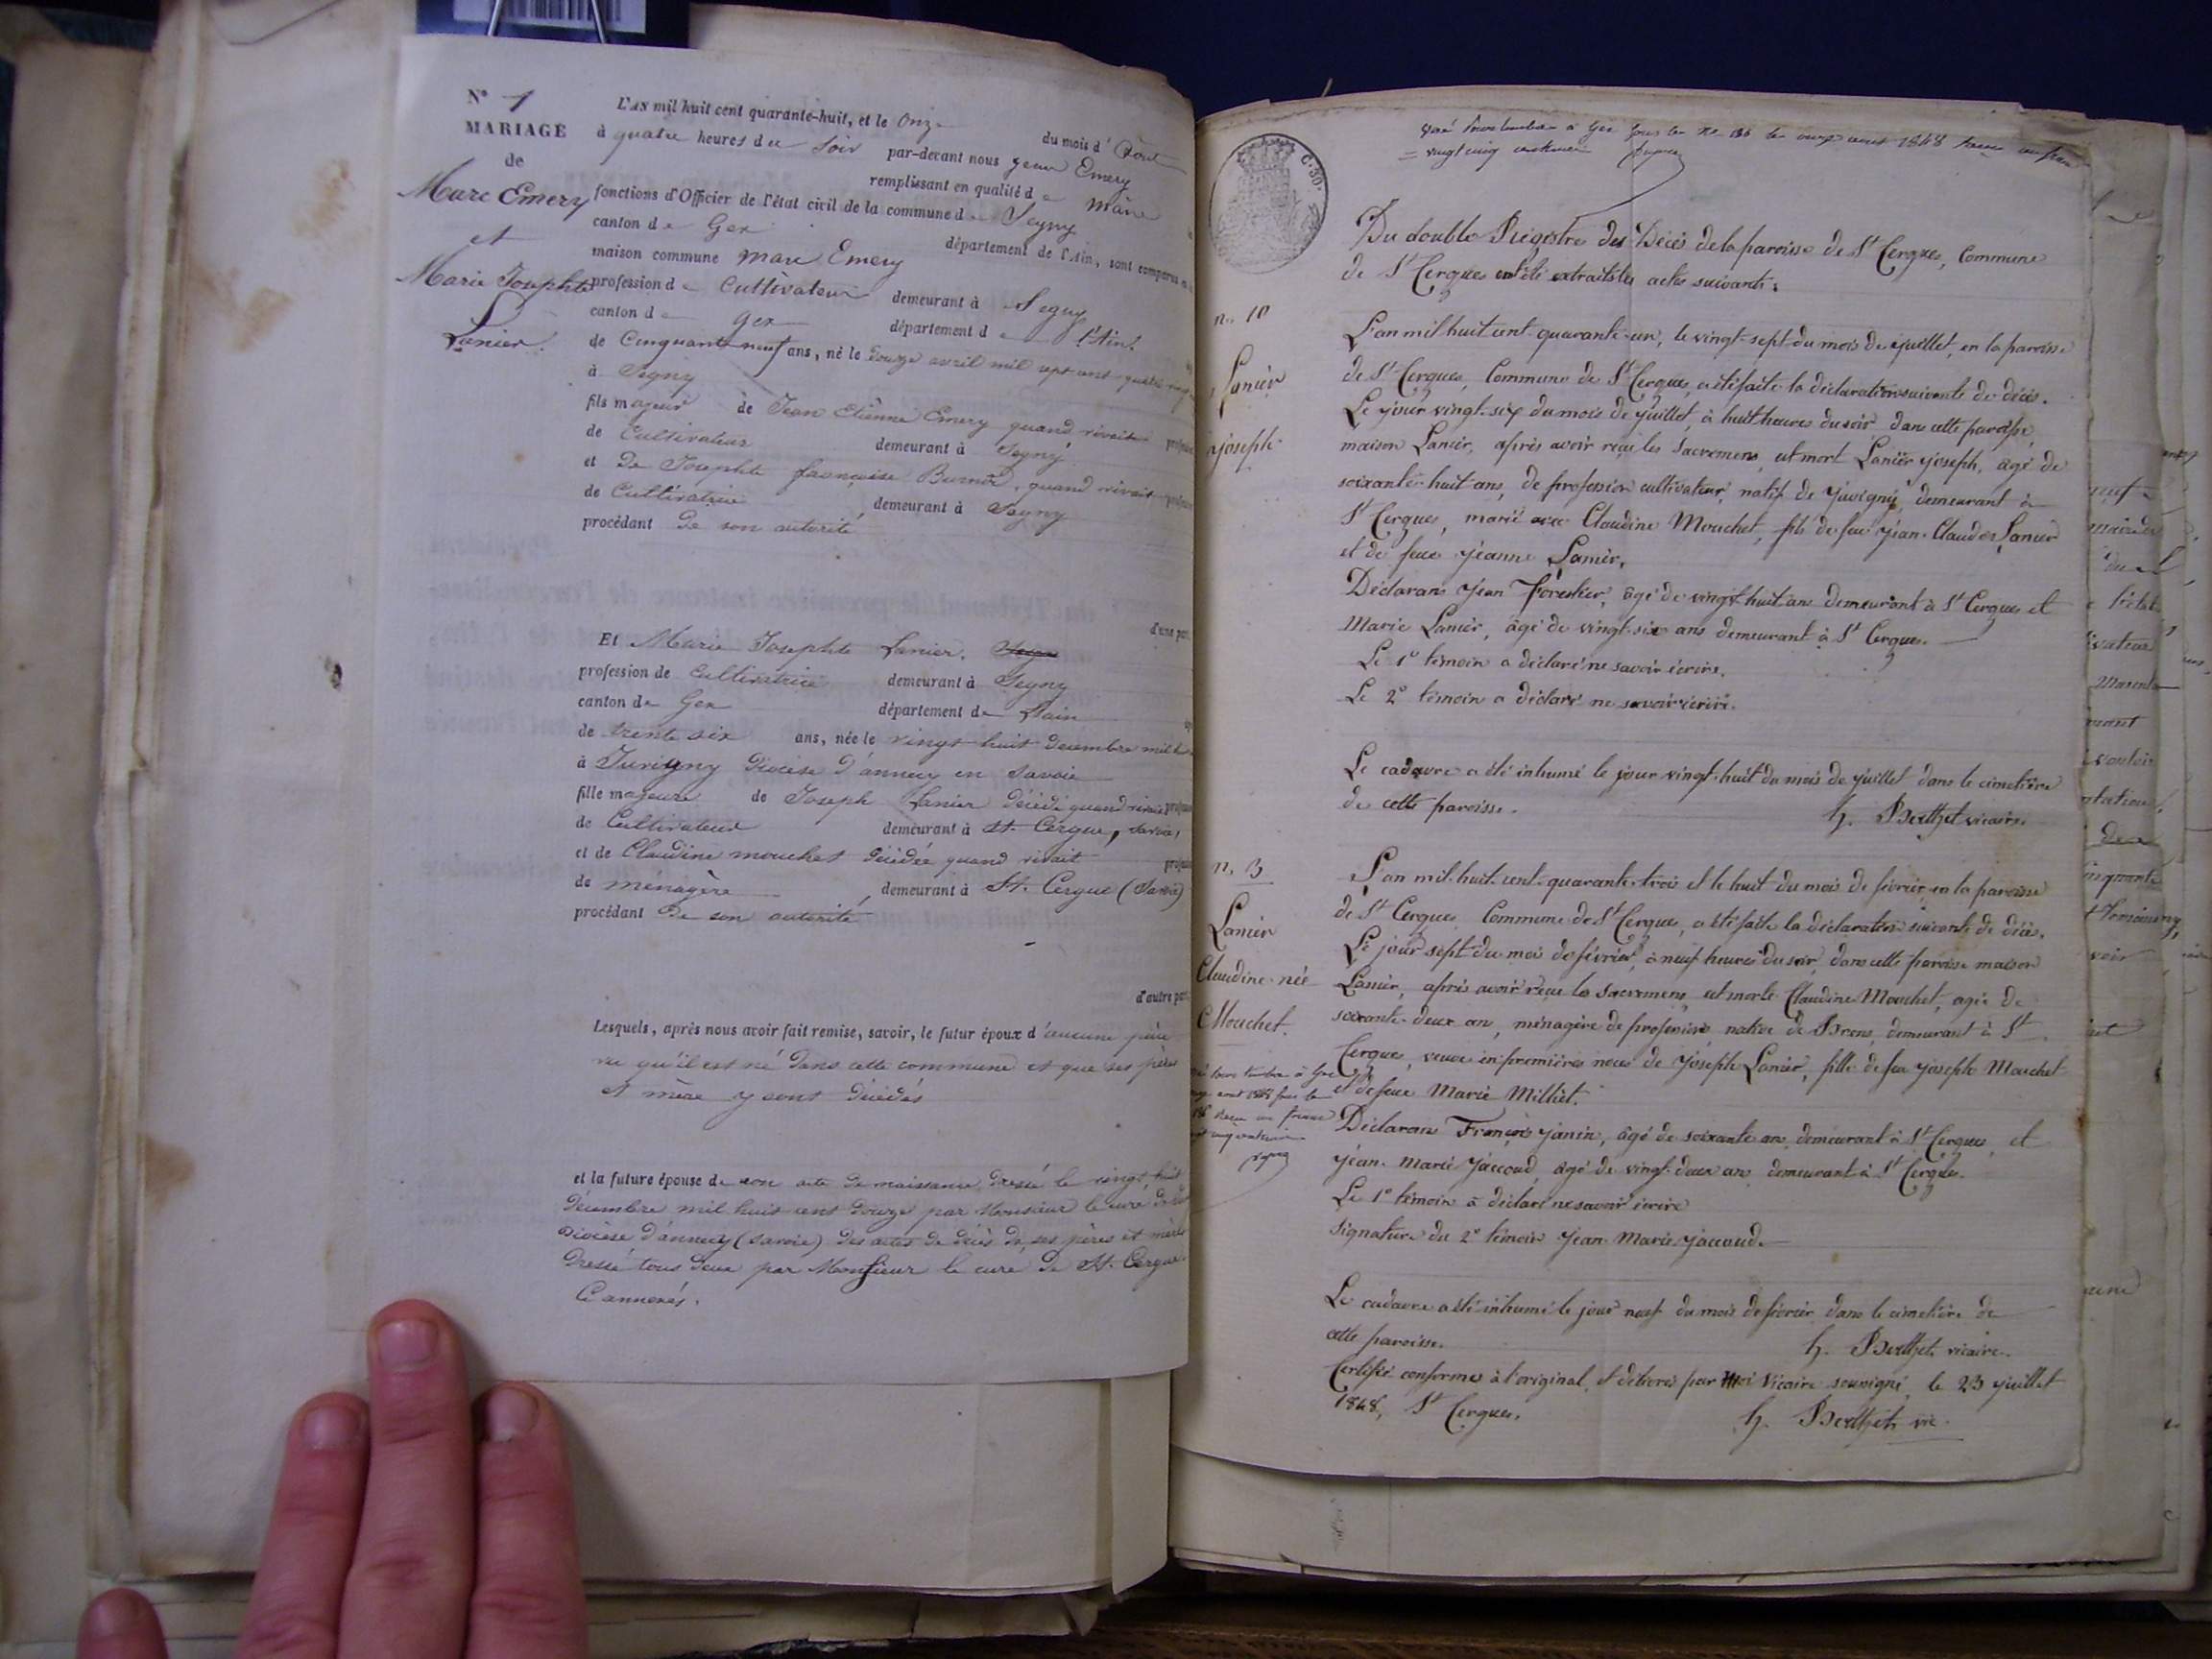 N° 1
MARIAGE
de
Marc Emery
et
Marie Josephte
Lanier.
L'AN mil huit cent quarante-huit, et le onze du mois d' Aout
à quatre heures du Soir par-devant nous Jean Emery
remplissant en qualité de Maire
fonctions d'Officier de l'état civil de la commune de Segny
canton de Gex département de l'Ain, sont comparus
maison commune Marc Emery
profession de Cultivateur demeurant à Segny
canton de Gex département de l'Ain.
de Cinquante neuf ans, né le Douze avril mil sept cent quatre vingt
à Segny
fils majeur de Jean Etienne Emery quand vivait
de Cultivateur demeurant à Segny
et De Josephte françoise quand vivait
de Cultivatrice, demeurant à Segny
procédant De son autorité
d'une part
Et Marie Josephte Lanier.
profession de Cultivatrice demeurant à Segny
canton de Gex département de Lain
de trente six ans, née le vingt huit Decembre mil
à Juvigny Diocèse d'annecy en Savoie
fille majeure de Joseph Lanier décédé quand vivait
de Cultivateur demeurant à St. Cergue, Savoie,
et de Claudine mouchet Décédée quand vivait
de ménagère, demeurant à St. Cergue (Savoie)
procédant De son autorité
d'autre part
Lesquels, après nous avoir fait remise, savoir, le futur époux d'aucune pièce
vu qu'il est né Dans cette commune et que ses père
et mère y sont Décédés
et la future épouse de son acte de naissance Dressé le vingt huit
Décembre mil huit cent Douze par Monsieur le curé
Diocèse D'annecy (Savoie) Des actes de Décès De ses pères et mère
Dressé tous deux par Monsieur le curé De St. Cergue
Ci annexés.
C.30.
le onze aout 1848
vingt cinq centimes
Du double Régistre des Décès de la paroisse de St Cergues, Commune
de St Cergues ont été extraits les actes suivants:
n. 10
Lanier
joseph
L'an mil huit cent quarante-un, le vingt-sept du mois de juillet, en la paroisse
de St Cergues, Commune de St Cergues, a été faite la déclaration suivante de décès.
Le jour vingt-six du mois de juillet, à huit heures du soir, dans cette paroisse,
maison Lanier, après avoir reçu les Sacremens, est mort Lanier joseph, âgé de
soixante-huit ans, de profession cultivateur, natif de Juvigny, demeurant à
St Cergues, marié avec Claudine Mouchet, fils de feu jean-Claude Lanier
et de feue jeanne Lanier.
Déclarans jean Forestier, âgé de vingt huit ans demeurant à St Cergues et
Marie Lanier, âgé de vingt-six ans demeurant à St Cergues.
Le 1er témoin a déclaré ne savoir écrire.
Le 2e témoin a déclaré ne savoir écrire.
Le cadavre a été inhumé le jour vingt-huit du mois de juillet dans le cimetière
de cette paroisse.
h. Berthet vicaire.
n. 3
Lanier
Claudine née
Mouchet.
L'an mil-huit-cent-quarante-trois et le huit du mois de février en la paroisse
de St Cergues Commune de St Cergues, a été faite la déclaration suivante de décès.
Le jour sept du mois de février, à neuf heures du soir, dans cette paroisse maison
Lanier, après avoir reçu les Sacremens, est morte Claudine Mouchet, agée de
soixante-deux ans, ménagère de profession, native de Brens, demeurant à St
Cergues, veuve en premières noces de joseph Lanier, fille de feu joseph Mouchet
et de feue Marie Milliet.
Déclarans François janin, âgé de soixante ans demeurant à St Cergues, et
jean-Marie jaccoud âgé de vingt-deux ans demeurant à St Cergues.
Le 1er témoin a déclaré ne savoir écrire
Signature du 2e témoin jean-Marie jaccoud.
Le cadavre a été inhumé le jour neuf du mois de février dans le cimetière de
cette paroisse.
h. Berthet vicaire.
Certifié conforme à l'original, et délivré par moi Vicaire soussigné, le 23 juillet
1848, St Cergues.
h. Berthet vic.